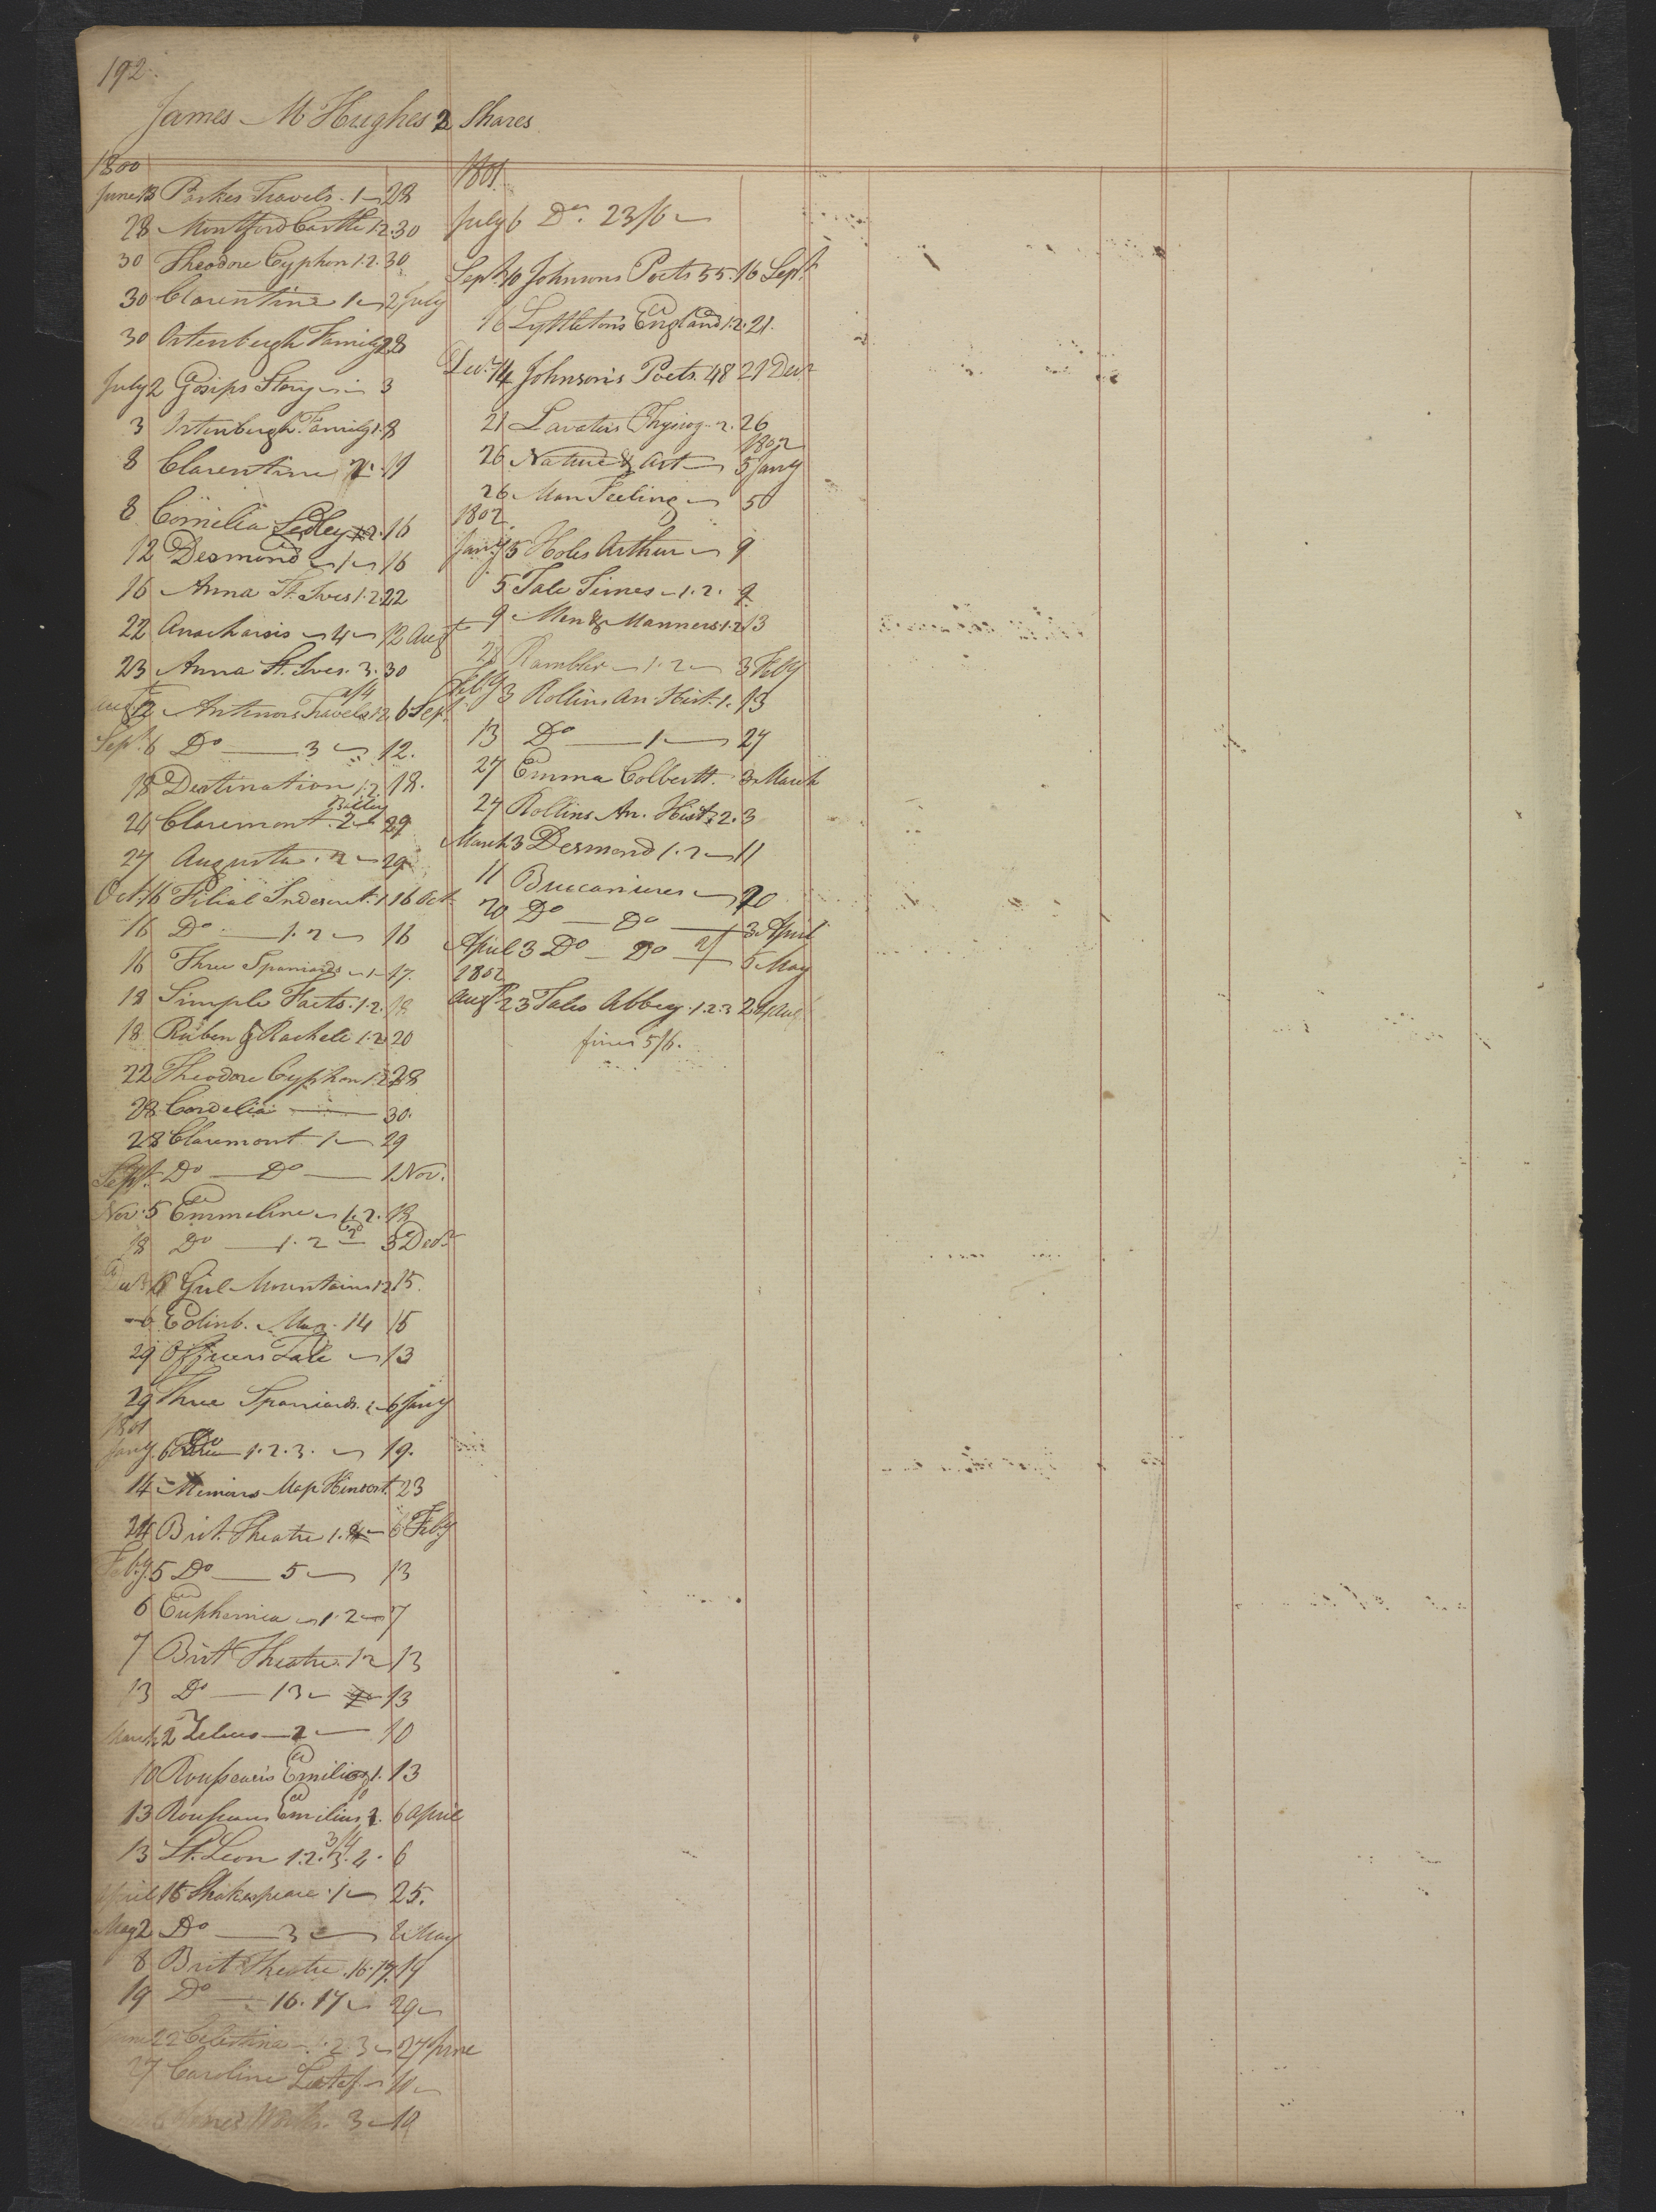 192.
James M Hughes 2 Shares
1800
June 13 Parkes Travels. 1 28
28 Montford Castle 1.2. 30
30 Theodore Cyphon 1.2. 30
30 Clarentine 1 2 July
30 Ortenburgh Family 28
July 2 Gosips Story 3
3 Ortenburgh Family 1. 8
8 Clarentine 11
8 Cornelia Sedley 1.2. 16
12 Desmond 1 16
16 Anna St. Ives 1.2. 22
22 Anacharsis 4 12 Augt
23 Anna St. Ives. 3. 30
Augt 12 Antenors Travels 1.2. 6 Sept.
Sept. 6 Do 3 12.
18 Destination 1.2. 18.
24 Claremont. 2 29
27 Augusta. 2 29
Oct. 16 Filial Indescret. 1 16 Oct
16 Do 1.2 16
16 Three Spaniards 1 17.
18 Simple Facts. 1.2. 18
18 Ruben & Rachell 1.2 20
22 Theodore Cyphon 1.2. 28
28 Cordelia 30.
28 Claremont 1 29
Sept. Do Do 1 Nov.
Nov. 5 Emmeline 1.2. 18
18 Do 1.2 3 Decr
6 Girl Mountains 1.2 15.
6 Edinb. Mag. 14 15
29 Officers Tale 13
29 Three Spaniards. 6 Jany
1801
Jany. 6 Do 1.2.3. 19.
14 Memoirs Map Hindost. 23
24 Brit. Theatre 1. 6 Feby
Feby. 5 Do 5 13
6 Euphemia 1.2 7
7 Brit Theatre. 12 13
13 Do 13 13
March 2 Zeluco 2 10
10 Rousseau's Emilius 1. 13
13 Rousseaus Emilius 2. 6 April
13 St. Leon 1.2.3.4. 6
April 15 Shakespeare. 1 25.
May 2 Do 3 8 May
8 Brit Theatre. 16.17. 19
19 Do 16.17 29
June 22 Celestina 1.2 3 27 June
27 Caroline 10
Jones Works. 3 19
1801.
July 6 Do. 23/6
Sept. 10 Johnsons Poets 55. 16 Sept
16 Lyttleton's England 1.2. 21.
Decr. 14 Johnson's Poets. 48 21 Decr
21 Lavaters Physiog. 2. 26
26 Nature & Art 1802 5 Jany
26 Man Feeling 5
1802
Jany. 5 Holes Arthur 9
5 Tale Times 1.2. 9
9 Men & Manners 1.2 13
28 Rambler 1.2 3 Feby
Feby 3 Rollins An. Hist. 1. 13
13 Do 1 27
27 Emma Colbertt. 3 March
27 Rollins An. Hist. 2. 3
March 3 Desmond 1.2 11
11 Buccaniers 20
20 Do Do 3 April
April 3 Do Do 2/ 5 May
1802
Augt 23 Tales Abbey. 1.2.3 24 Aug
fines 5/6.